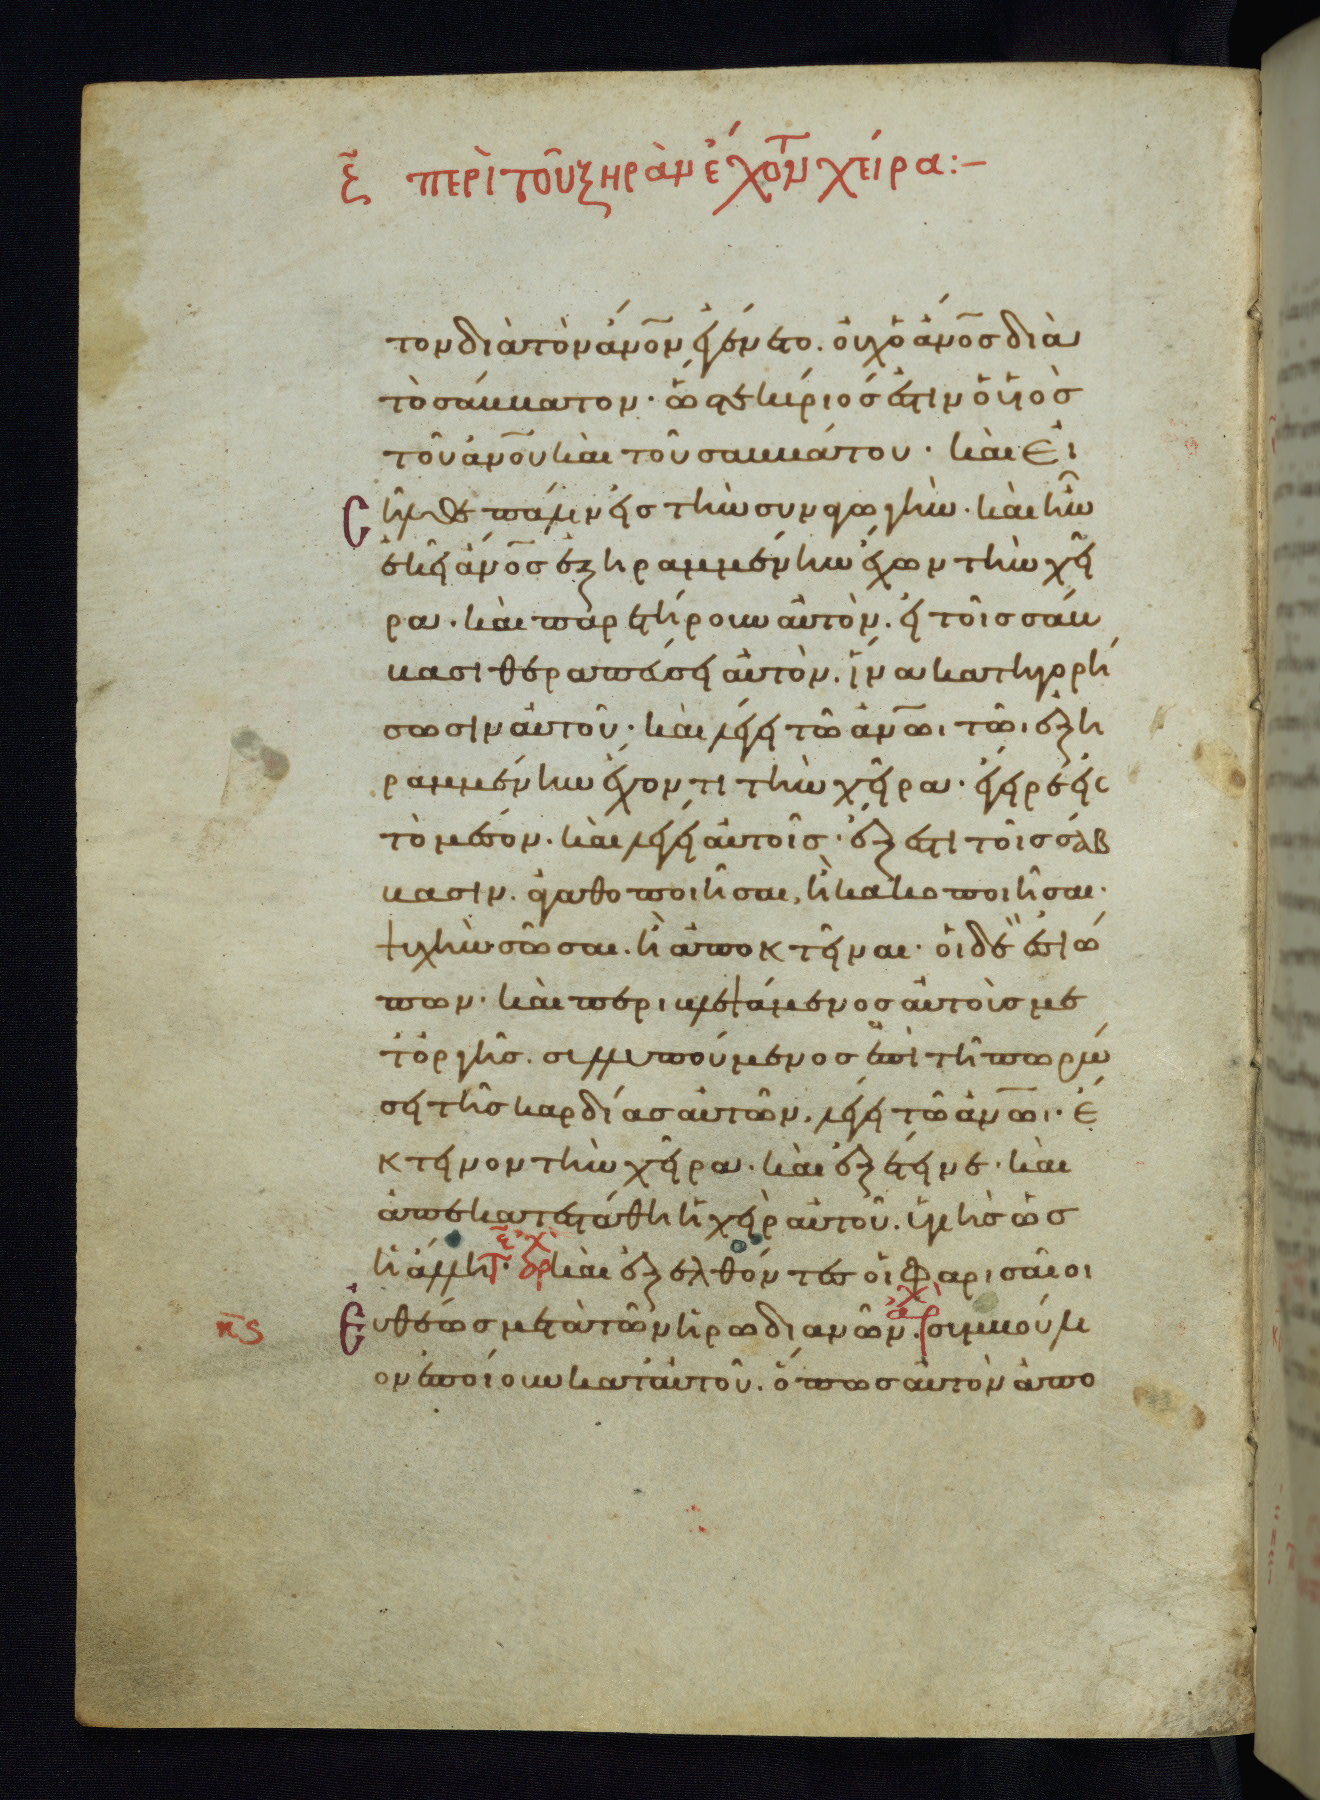 ξ̃ περὶ τοῦ ξηρὰν ἔχοντ χείρα:–
τον διὰ τὸν ἀν̅ον ἐγένετο. οὐχ ὁ ἀν̅οσ διὰ
τὸ σάββατον· ὥστε κύριόσ ἐστιν ὁ υἱὸσ
τοῦ ἀν̅ου καὶ τοῦ σαββάτου· καὶ εἰ
σῆλθε πάλιν εἰσ τὴν συναγωγὴν· καὶ ἦν
ἐκεῖ ἀν̅οσ ἐξηραμμένην ἔχων τὴν χεῖ
ρα· καὶ παρετήρουν αὐτὸν. εἰ τοῖσ σάβ
βασι θεραπεύσει αὐτὸν. ἵνα κατηγορή
σωσιν αὐτοῦ· καὶ λέγει τῶ ἀν̅ωι τῶι ἐξη
ραμμένην ἔχοντι τὴν χεῖρα· ἔγειρε εἰσ
τὸ μέσον. καὶ λέγει αὐτοῖσ· ἔξεστι τοῖσ σάβ
βασιν. ἀγαθοποιῆσαι, ἢ κακοποιῆσαι·
ψυχὴν σῶσαι. ἢ ἀποκτεῖναι· οἱ δὲ ἐσιώ
πων· καὶ περιβλεψάμενοσ αὐτοὺσ με
τ ὀργῆσ. συλλυπούμενοσ ἐπὶ τῆ πωρώ
σει τῆσ καρδίασ αὐτῶν. λέγει τῶ ἀν̅ωι· ἔ
κτεινον τὴν χεῖρα· καὶ ἐξέτεινε· καὶ
ἀπεκατεστάθη ἡ χεὶρ αὐτοῦ. ὑγιὴσ ὡσ
ἡ ἄλλη· καὶ ἐξελθόντεσ οἱ φαρισαῖοι
κ̅ϛ εὐθέωσ μετὰ τῶν ἡρωδιανῶν. συμβούλι
ον ἐποίουν κατ αὐτοῦ. ὅπωσ αὐτὸν ἀπο